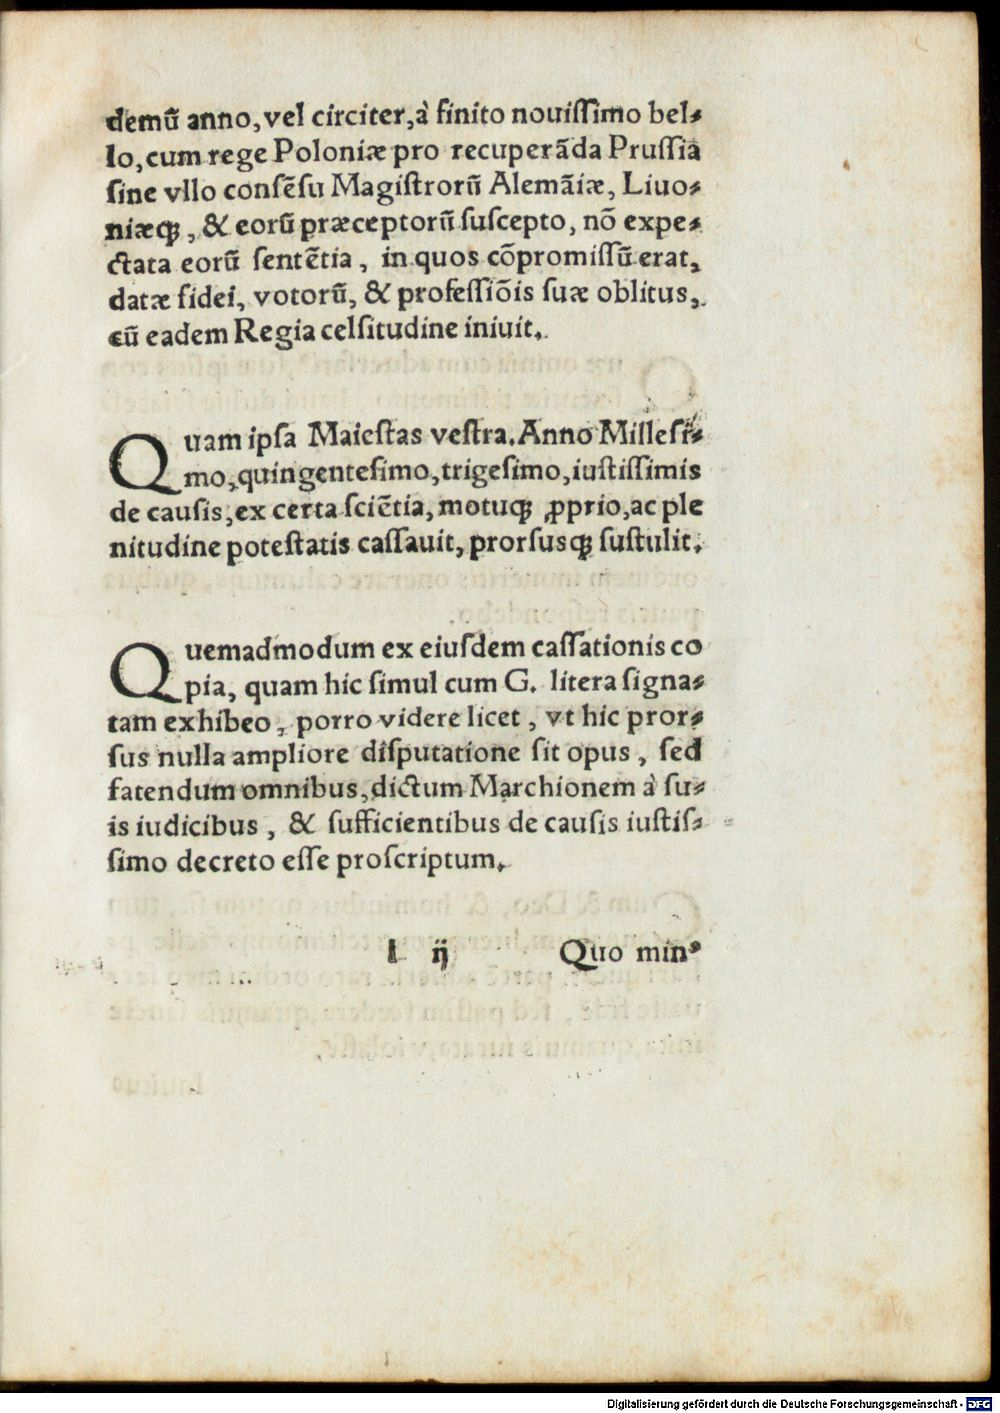 demũ anno, vel circiter, à finito nouiſſimo bel⸗
lo, cum rege Poloniæ pro recuperãda Pruſſia
ſine vllo conſẽſu Magiſtrorũ Alemãiæ, Liuo⸗
niæqꝫ, & eorũ præceptorũ ſuſcepto, nõ expe⸗
ctata eorũ ſentẽtia, in quos cõpromiſſũ erat,
datæ fidei, votorũ, & profeſſiõis ſuæ oblitus,
cũ eadem Regia celſitudine iniuit.
Quam ipſa Maieſtas veſtra. Anno Milleſi⸗
mo, quingenteſimo, trigeſimo, iuſtiſſimis
de cauſis, ex certa ſciẽtia, motuqꝫ ꝓprio, ac ple
nitudine poteſtatis caſſauit, prorſusqꝫ ſuſtulit.
Quemadmodum ex eiuſdem caſſationis co
pia, quam hic ſimul cum G. litera ſigna⸗
tam exhibeo, porro videre licet, vt hic pror⸗
ſus nulla ampliore diſputatione ſit opus, ſed
fatendum omnibus, dictum Marchionem à ſu⸗
is iudicibus, & ſufficientibus de cauſis iuſtiſ⸗
ſimo decreto eſſe proſcriptum.
I ij Quo minꝰ
Digitalisierung gefördert durch die Deutsche Forschungsgemeinschaft - DFG